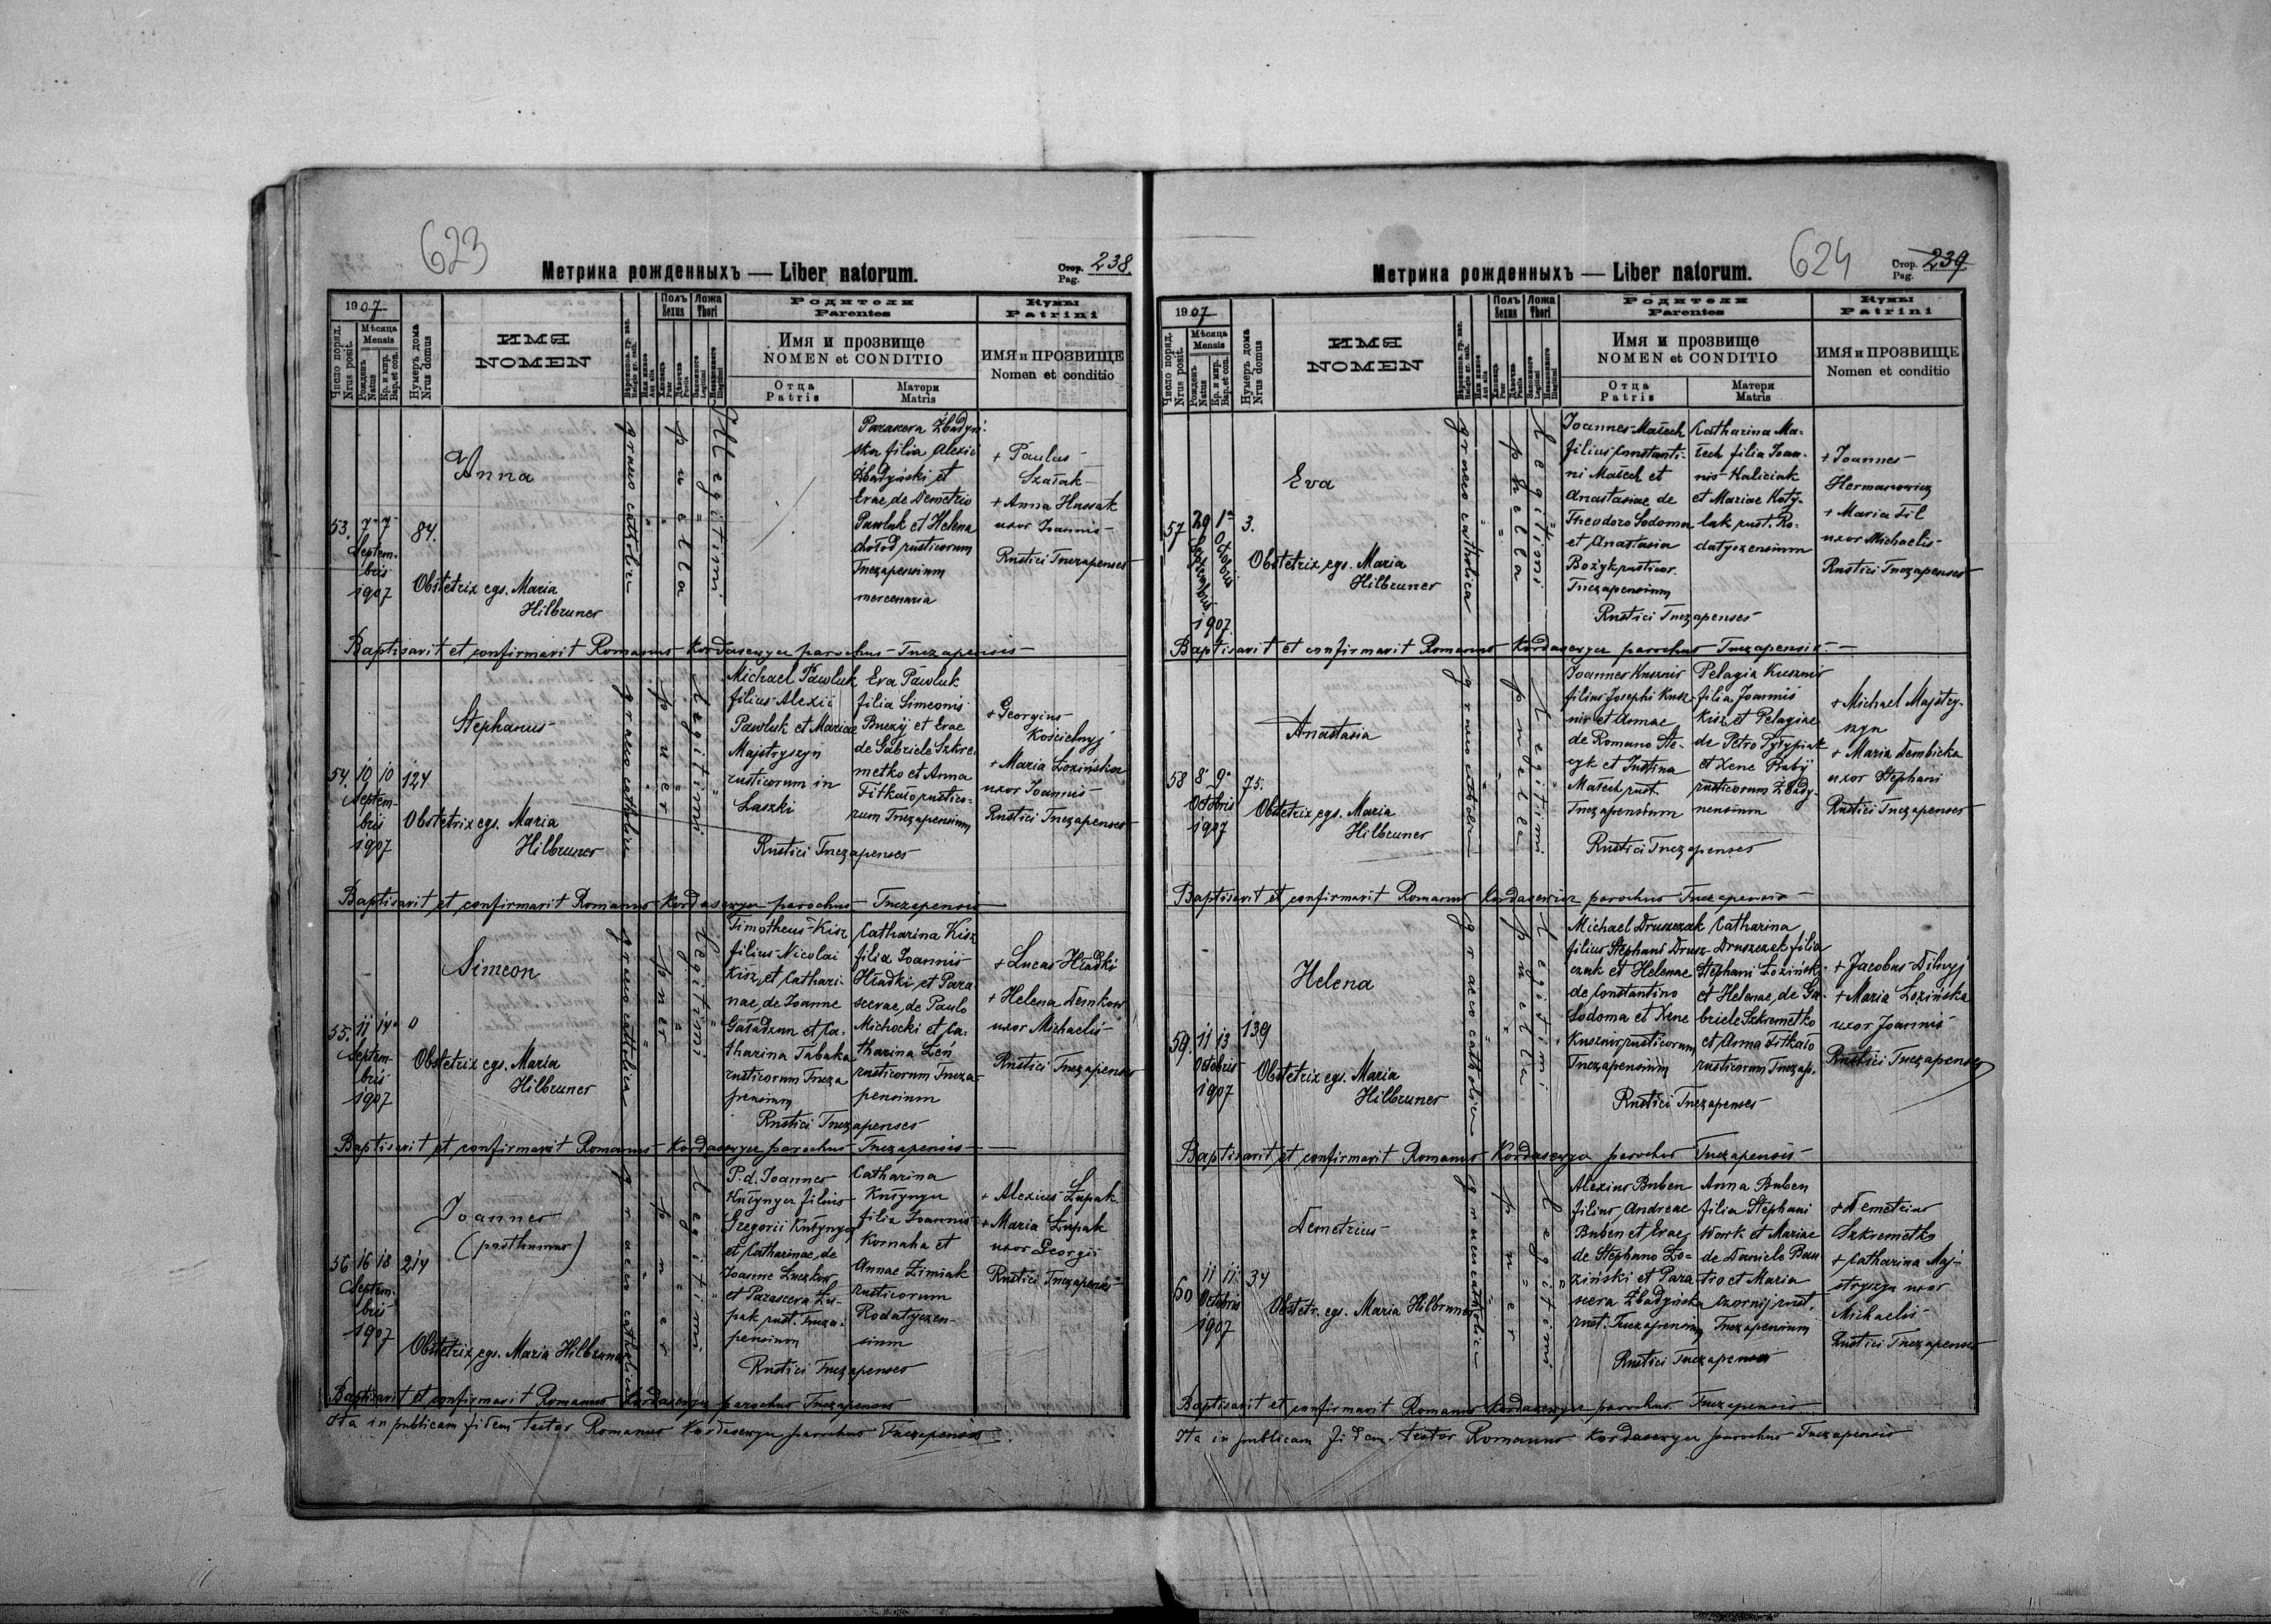 623
Метрика рожденныхъ — Liber natorum.
Стор. Pag. 238.
1907
Число поряд. Nrus posit.
Мѣсяца Mensis
Рожденъ Natus
Кр. и мир. Bap. et con.
Нумеръ дома Nrus domus
ИМЯ
NOMEN
Полъ Sexus
Ложа Thori
Родители
Parentes
Имя и прозвище
NOMEN et CONDITIO
Отца Patris
Матери Matris
Кумы
Patrini
ИМЯ и ПРОЗВИЩЕ
Nomen et conditio
53. 7 7 Septembris 1907
84.
Anna
Obstetrix egs. Maria
Hilbruner
graeco catholica
puella
Illegitimi
Parascera Żbadyń-
ska filia Alexii
Żbadyński et
Evae, de Demetrio
Pawluk et Helena
Chołod rusticorum
Tuczapensium
mercenaria
+ Paulus
Szałak
+ Anna Hussak
uxor Joannis
Rustici Tuczapenses
Baptisavit et confirmavit Romanus Kordasewycz parochus Tuczapensis
54. 10 10 Septembris 1907
124
Stephanus
Obstetrix egs. Maria
Hilbruner
graeco catholica
puer
Legitimi
Michael Pawluk
filius Alexii
Pawluk et Mariae
Majstryszyn
rusticorum in
Laszki
Eva Pawluk
filia Simeonis
Buczij et Evae
de Gabriele Szkre-
metko et Anna
Fitkało rustico-
rum Tuczapensium
Rustici Tuczapenses
+ Georgius
Kościelnyj
+ Maria Łozińska
uxor Joannis
Rustici Tuczapenses
Baptisavit et confirmavit Romanus Kordasewycz parochus Tuczapensis
55. 11 14 Septembris 1907
0
Simeon
Obstetrix egs. Maria
Hilbruner
graeco catholica
puer
Legitimi
Timotheus Kisz
filius Nicolai
Kisz, et Cathari-
nae, de Joanne
Gaładzun et Ca-
tharina Tabaka
rusticorum Tucza
pensium
Catharina Kisz
filia Joannis
Hladki, et Para
scevae, de Paulo
Michocki et Ca-
tharina Łeń
rusticorum Tucza-
pensium
Rustici Tuczapenses
+ Lucas Hladki
+ Helena Demkow
uxor Michaelis
Rustici Tuczapenses
Baptisavit et confirmavit Romanus Kordasewycz parochus Tuczapensis
56 16 18 Septembris 1907
214
Joannes
(posthumus)
Obstetrix egs. Maria Hilbruner
graeco catholica
puer
Legitimi
P. d. Joannes
Kułynycz filius
Gregorii Kułynycz
et Catharinae, de
Joanne Łuczkow
et Parascera Łu-
pak rust. Tucza-
pensium
Catharina
Kułynycz
filia Joannis
Kornaha et
Annae Zimiak
rusticorum
Rodatyczen-
sium
Rustici Tuczapenses
+ Alexius Łupak
+ Maria Łupak
uxor Georgii
Rustici Tuczapenses
Baptisavit et confirmavit Romanus Kordasewycz parochus Tuczapensis
Ita in publicam fidem testor Romanus Kordasewycz parochus Tuczapensis
624
Метрика рожденныхъ — Liber natorum.
Стор. Pag. 239
1907
Число поряд. Nrus posit.
Мѣсяца Mensis
Рожденъ Natus
Кр. и мир. Bap. et con.
Нумеръ дома Nrus domus
ИМЯ
NOMEN
Полъ Sexus
Ложа Thori
Родители
Parentes
Имя и прозвище
NOMEN et CONDITIO
Отца Patris
Матери Matris
Кумы
Patrini
ИМЯ и ПРОЗВИЩЕ
Nomen et conditio
57 29 Septembris 1 Octobris 1907
3.
Eva
Obstetrix egs. Maria
Hilbruner
graeco catholica
puella
Legitimi
Joannes Małech
filius Constanti-
ni Małech et
Anastasiae, de
Theodoro Sodoma
et Anastasia
Bożyk rusticor.
Tuczapensium
Catharina Ma-
łech filia Joan-
nis Kaliciak
et Mariae Koty-
lak rust. Ro-
datyczensium
Rustici Tuczapenses
+ Joannes
Hermanowicz
+ Maria Fil
uxor Michaelis
Rustici Tuczapenses
Baptisavit et confirmavit Romanus Kordasewycz parochus Tuczapensis
58 8 9 Octobris 1907
75.
Anastasia
Obstetrix egs. Maria
Hilbruner
graeco catholica
puella
Legitimi
Joannes Kusznir
filius Josephi Kusz-
nir et Annae
de Romano Ste-
cyk et Justina
Małech rust.
Tuczapensium
Pelagia Kusznir
filia Joannis
Kisz, et Pelagiae
de Petro Pyłypiak
et Xene Babij
rusticorum Żbady-
nensium
Rustici Tuczapenses
+ Michael Majstry-
szyn
+ Maria Dembicka
uxor Stephani
Rustici Tuczapenses
Baptisavit et confirmavit Romanus Kordasewicz parochus Tuczapensis
59. 11 13 Octobris 1907
139
Helena
Obstetrix egs. Maria
Hilbruner
graeco catholica
puella
Legitimi
Michael Druszczak
filius Stephani Drusz-
czak et Helenae
de Constantino
Sodoma et Xene
Kusznir rusticorum
Tuczapensium
Catharina
Druszczak filia
Stephani Łoziński
et Helenae, de Ga-
briele Szkremetko
et Anna Fitkało
rusticorum Tuczap.
Rustici Tuczapenses
+ Jacobus Dilnyj
+ Maria Łozińska
uxor Joannis
Rustici Tuczapenses
Baptisavit et confirmavit Romanus Kordasewycz parochus Tuczapensis
60 11 11 Octobris 1907
34
Demetrius
Obstetr. egs. Maria Hilbruner
graeco catholica
puer
Legitimi
Alexius Buben
filius Andreae
Buben et Evae,
de Stephano Ło-
ziński et Para
scera Żbadyńska
rust. Tuczapensium
Anna Buben
filia Stephani
Work et Mariae
de Daniele
et Maria
Czornij rust.
Tuczapensium
Rustici Tuczapenses
+ Demetrius
Szkremetko
+ Catharina Maj-
stryszyn uxor
Michaelis
Rustici Tuczapenses
Baptisavit et confirmavit Romanus Kordasewycz parochus Tuczapensis
Ita in publicam fidem testor Romanus Kordasewycz parochus Tuczapensis